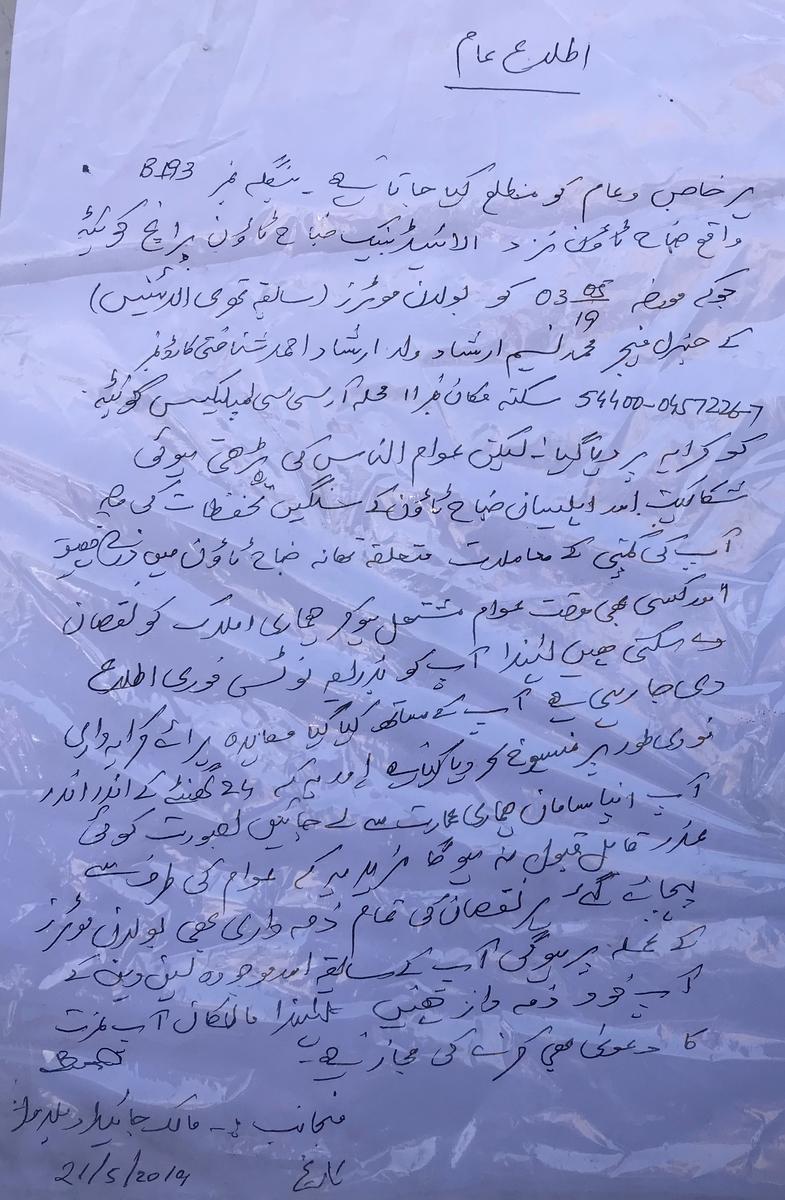 اطلاع عام
ہر خاص وعام کو مطلع کیا جاتا ہے ۔ بنگلہ نمبر B-193
واقع جناح ٹاؤن نزد الائیڈ بینک جناح ٹاؤن برانچ کوئٹہ
جوکہ مورخہ 03 05/19 کو گولڈن موٹرز (سابقہ قومی الائنس)
کے جنرل منیجر محمد نسیم ارشاد ولد ارشاد احمد شناختی کارڈ نمبر
54400-0457226-7 سکنہ مکان نمبر 11 محلہ آر سی سی کمپلیکس کوئٹہ
کو کرایہ پر دیا گیا ۔ لیکن عوام الناس کی بڑھتی ہوئی
شکایت اور اہلیان جناح ٹاؤن کے سنگین تحفظات کی وجہ
آپ کی کمپنی کے معاملات متعلقہ تھانہ جناح ٹاؤن میں
اور کسی بھی وقت عوام مشتعل ہوکر ہماری املاک کو نقصان
دے سکتی ھیں لہٰذا آپ کو بذریعہ نوٹس فوری اطلاع
دی جا رہی ہے آپ کے ساتھ کیا گیا معاہدہ برائے کرایہ داری
فوری طور پر منسوخ کر دیا گیا ہے اور یہ کہ 24 گھنٹے کے اندر اندر
آپ اپنا سامان ہماری عمارت سے لے جائیں بصورت کوئی
عذر قابل قبول نہ ہوگا مزید یہ کہ عوام کی طرف سے
پہچائے گئے ہر نقصان کی تمام ذمہ داری بھی گولڈن موٹرز
کے عملہ پر ہوگی آپ کے سابقہ اور موجودہ لین دین کے
آپ خود ذمہ دار ھیں لہٰذا مالکان آپ
کا دعویٰ بھی کرنے کی مجاز ہے ۔
منجانب :۔ مالک جائیداد
تاریخ 21/5/2019